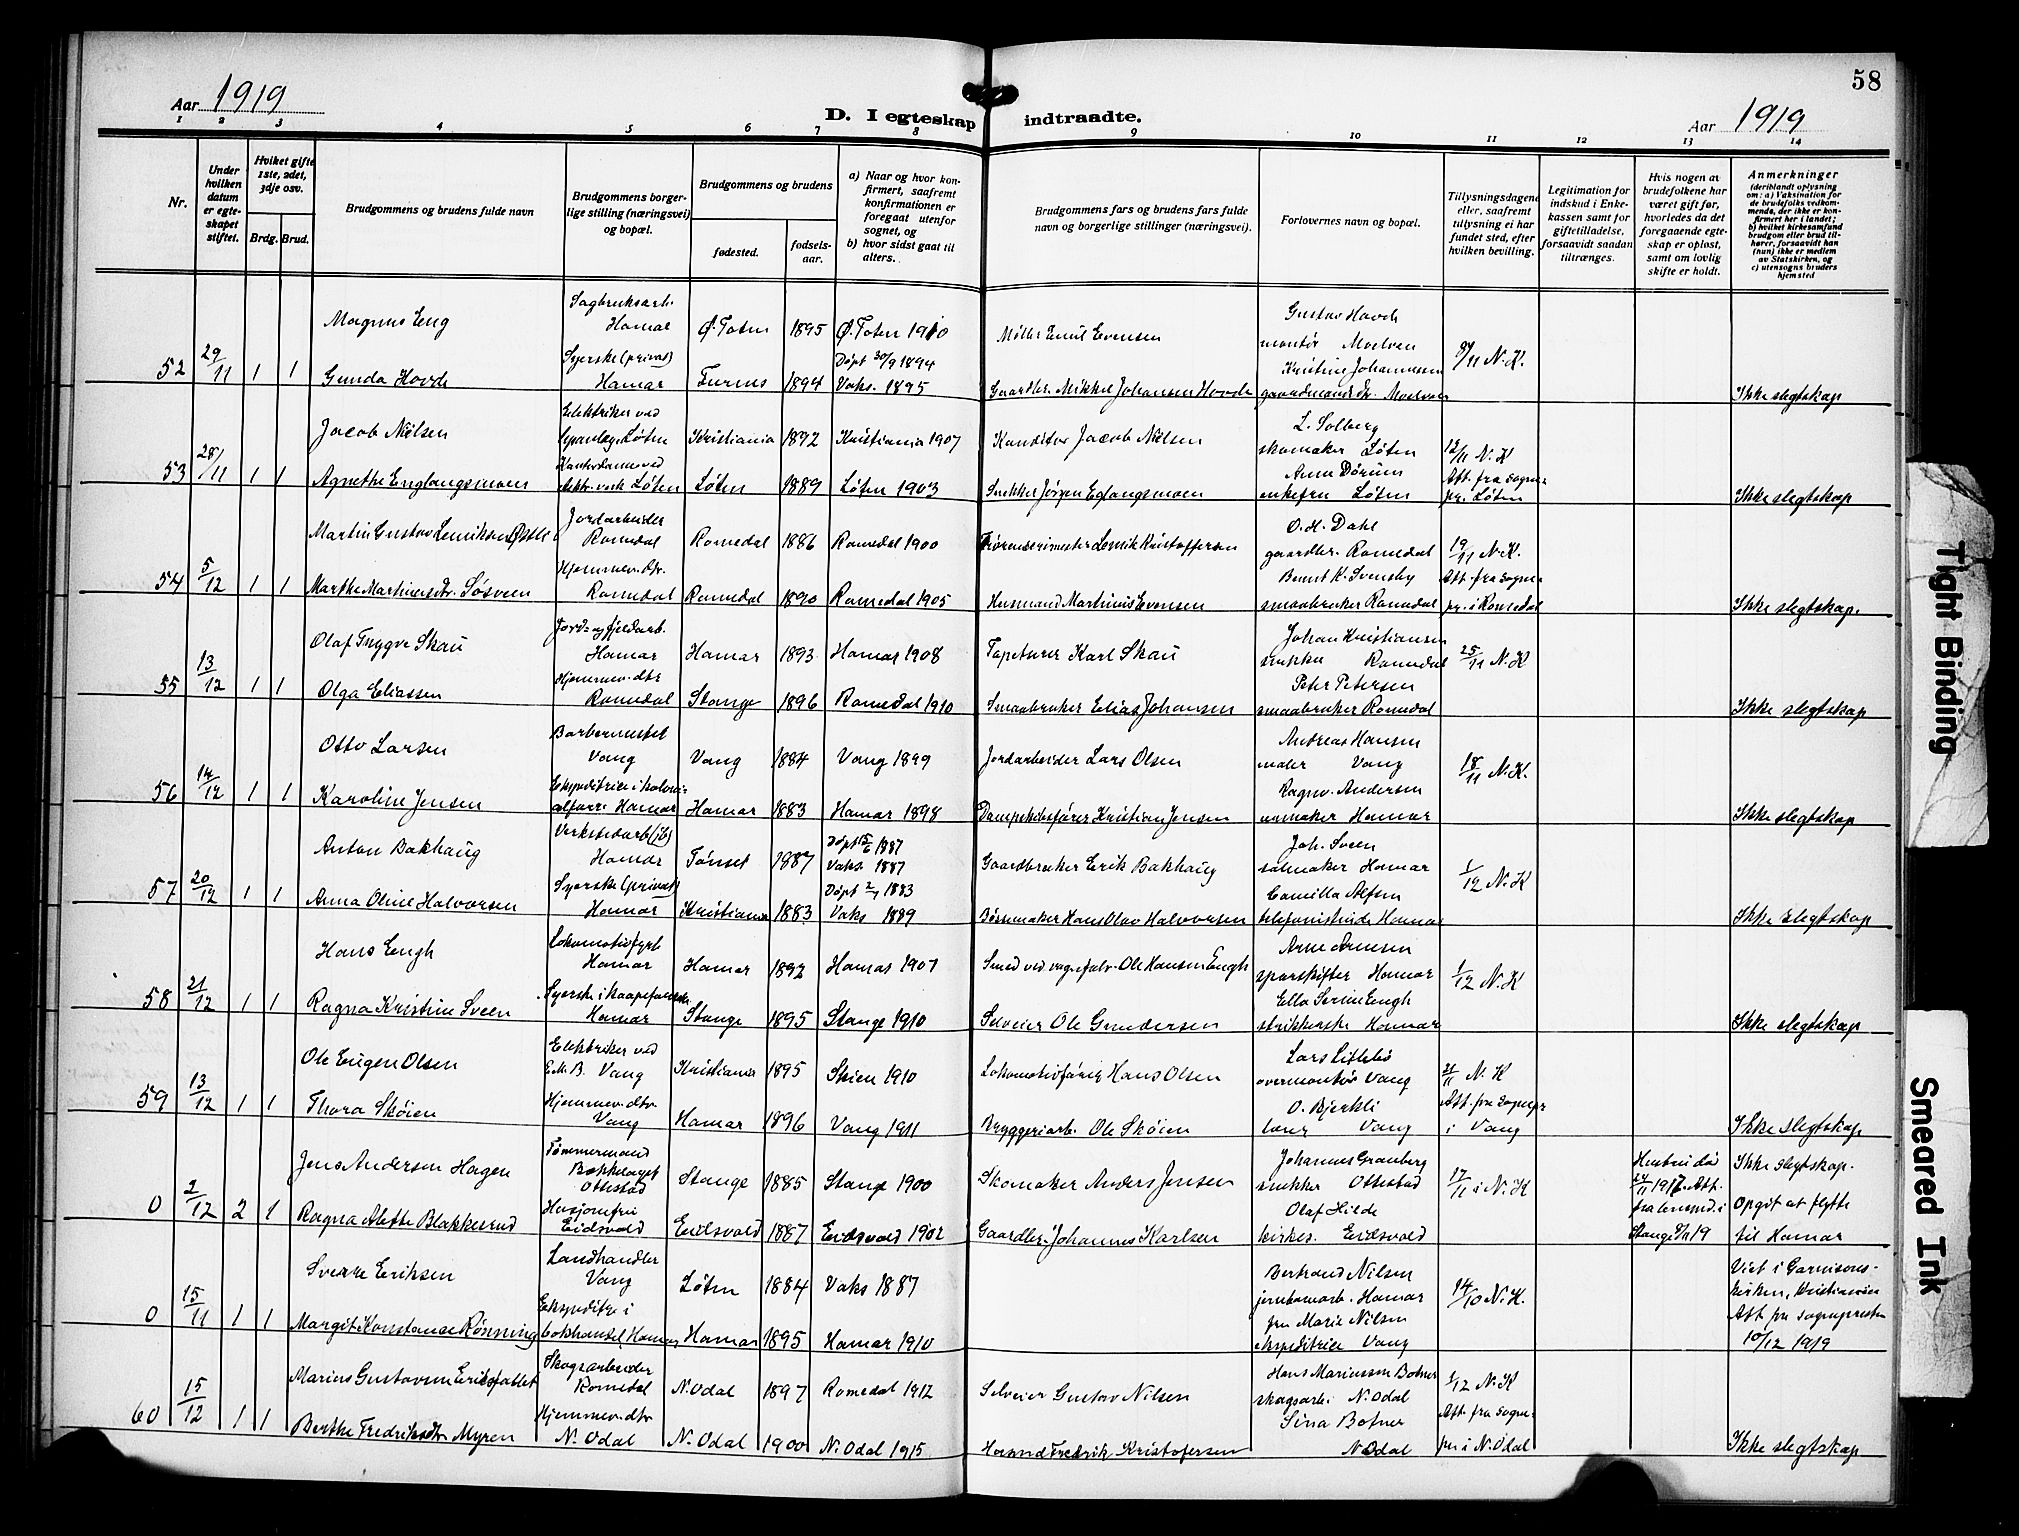 58
Aar 1919
D. I egteskap indtraadte.
Aar 1919
1 2 3 4 5 6 7 8 9 10 11 12 13 14
Nr.
Under hvilken datum er egte-skapet stiftet.
Hvilket gifte 1ste, 2det, 3dje osv.
Brdg. Brud.
Brudgommens og brudens fulde navn
Brudgommens borger-lige stilling (næringsvei) og bopæl.
Brudgommens og brudens
fødested.
fødsels-aar.
a) Naar og hvor kon-firmert, saafremt konfirmationen er foregaat utenfor sognet, og
b) hvor sidst gaat til alters.
Brudgommens fars og brudens fars fulde navn og borgerlige stillinger (næringsvei).
Forlovernes navn og bopæl.
Tillysningsdagene eller, saafremt tillysning ei har fundet sted, efter hvilken bevilling.
Legitimation for indskud i Enke-kassen samt for giftetilladelse, forsaavidt saadan tiltrænges.
Hvis nogen av brudefolkene har været gift før, hvorledes da det foregaaende egte-skap er opløst, samt om lovlig skifte er holdt.
Anmerkninger
(deriblandt oplysning om: a) Vaksination for de brudefolks vedkom-menda, der ikke er kon-firmert her i landet; b) hvilket kirkesamfund brudgom eller brud til-hører, forsaavidt han (hun) ikke er medlem av Statskirken, og c) utensogns bruders hjemsted
Magnus Eng Sagbruksarb. Hamar Ø. Toten 1895 Ø. Toten 1910 Møller Emil Evensen Gustav Hovde montør Moelven
52 29/11 1 1 Gunda Hovde Syerske (privat) Hamar Furnes 1894 Døpt 30/9 1894 Vaks. 1895 Gaardbr. Mikkel Johansen Hovde Kristine Johannessen Moelven 9/11 N. K. Ikke slegtskap
Jacob Nielsen Elektriker ved Løten Kristiania 1892 Kristiania 1907 Konditor Jacob Nielsen L. Solberg skomaker Løten
53 28/11 1 1 Agnethe Englangsmoen Kontordame ved elektr. verk Løten Løten 1889 Løten 1903 Snekker Jørgen Eglangsmoen Anne Dørum enkefru Løten 12/11 N. K Att. fra sogne-pr. i Løten Ikke slegtskap
Martin Gustav Lenriksen Østli Jordarbeider Romedal Romedal 1886 Romedal 1900 Lenrik Kristoffersen O. H. Dahl gaardbr. Romedal
54 5/12 1 1 Marthe Martinusdtr. Søsveen Hjemmev. dtr. Romedal Romedal 1890 Romedal 1905 Husmand Martinus Evensen Bernt K. Svensby smaabruker Romedal 19/11 N. K. Att. fra sogne-pr. i Romedal Ikke slegtskap.
Olaf Trygve Skau Jord- og fjeldarb. Hamar Hamar 1893 Hamar 1908 Tapetserer Karl Skau Johan Kristiansen snekker Romedal
55 13/12 1 1 Olga Eliassen Hjemmev. dtr Romedal Stange 1896 Romedal 1910 Smaabruker Elias Johansen Peter Petersen smaabruker Romedal 25/11 N. K Ikke slegtskap
Otto Larsen Barbermester Vang Vang 1884 Vang 1899 Jordarbeider Lars Olsen Andreas Hansen maler Vang
56 14/12 1 1 Karoline Jensen Ekspeditrice i koloni-alforr. Hamar Hamar 1883 Hamar 1898 Dampskibsfører Kristian Jensen Ragnv. Andersen urmaker Hamar 18/11 N. K. Ikke slegtskap
Anton Bakhaug Verkstedarb (jb) Hamar Tønset 1887 Døpt 1887 Vaks. 1887 Gaardbruker Erik Bakhaug Joh. Sveen salmaker Hamar
57 20/12 1 1 Anna Oline Halvorsen Syerske (privat) Hamar Kristiania 1883 Døpt 1883 Vaks 1889 Børsemaker Hans Olav Halvorsen Camilla Alfsen telefonistinde Hamar 1/12 N. K Ikke slegtskap
Hans Engh Lokomotivfyrb Hamar Hamar 1892 Hamar 1907 Smed ved vognfabr. Ole Hansen Engh Arne Arnesen sporskifter Hamar
58 21/12 1 1 Ragna Kristine Sveen Syerske i Hamar Stange 1895 Stange 1910 Selveier Ole Gundersen Ella Serine Engh strikkerske Hamar 1/12 N. K Ikke slegtskap
Ole Eugen Olsen Elektriker ved E. M. B. Vang Kristiania 1895 Skien 1910 Lokomotivfører Hans Olsen Lars Lillebø overmontør Vang
59 13/12 1 1 Thora Skøien Hjemmev. dtr Vang Hamar 1896 Vang 1911 Bryggeriarb. Ole Skøien O. Bjerkli Vang 21/11 N. K Att. fra sognepr i Vang Ikke slegtskap
Jens Andersen Hagen Tømmermand Bækkelaget Ottestad Stange 1885 Stange 1900 Skomaker Anders Jensen Johannes Granberg snekker Ottestad
0 2/12 2 1 Ragna Alette Blakkesrud Husjomfru Eidsvold Eidsvold 1887 Eidsvold 1902 Gaardbr. Johannes Karlsen Olaf Hilde kirkes. Eidsvold 17/11 i N. K Hustru dø 1917. Att. fra lensmd. i Stange 19 Ikke slegtskap. Opgit at flytte til Hamar
Sverre Eriksen Landhandler Vang Løten 1884 Vaks 1887 Bertrand Nilsen jernbanearb. Hamar
0 15/11 1 1 Margit Konstance Rønning Ekspeditr. i bokhandel, Hamar Hamar 1895 Hamar 1910 fru Marie Nilsen ekspeditrice Vang 14/10 N. K. Viet i Garnisons-kirken, Kristiania Att fra sogneprest 10/12 1919
Marius Gustavsen Skogsarbeider Romedal N. Odal 1897 Romedal 1912 Selveier Gustav Nilsen Hans Mariussen Botner skogsarb. N. Odal
60 15/12 1 1 Berthe Fredriksdtr Myren Hjemmev. dtr N. Odal N. Odal 1900 N. Odal 1915 Husmd Fredrik Kristofersen Sina Botner N. Odal 1/12 N. K Att. fra sogne-pr. i N. Odal Ikke slegtskap
Tight Binding
Smeared Ink